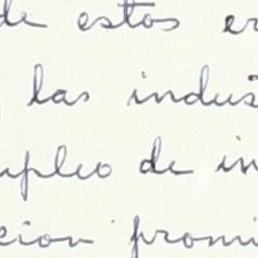 de estos er
las indus
mpleo de in
cion promi